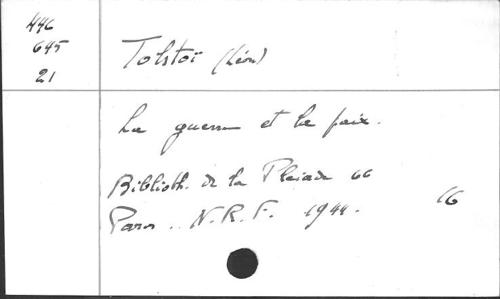 446
645
21
Tolstoï (Léon)
La guerre et la paix.
Biblioth. de la Pleiade 66
Paris. N.R.F. 1944.
16